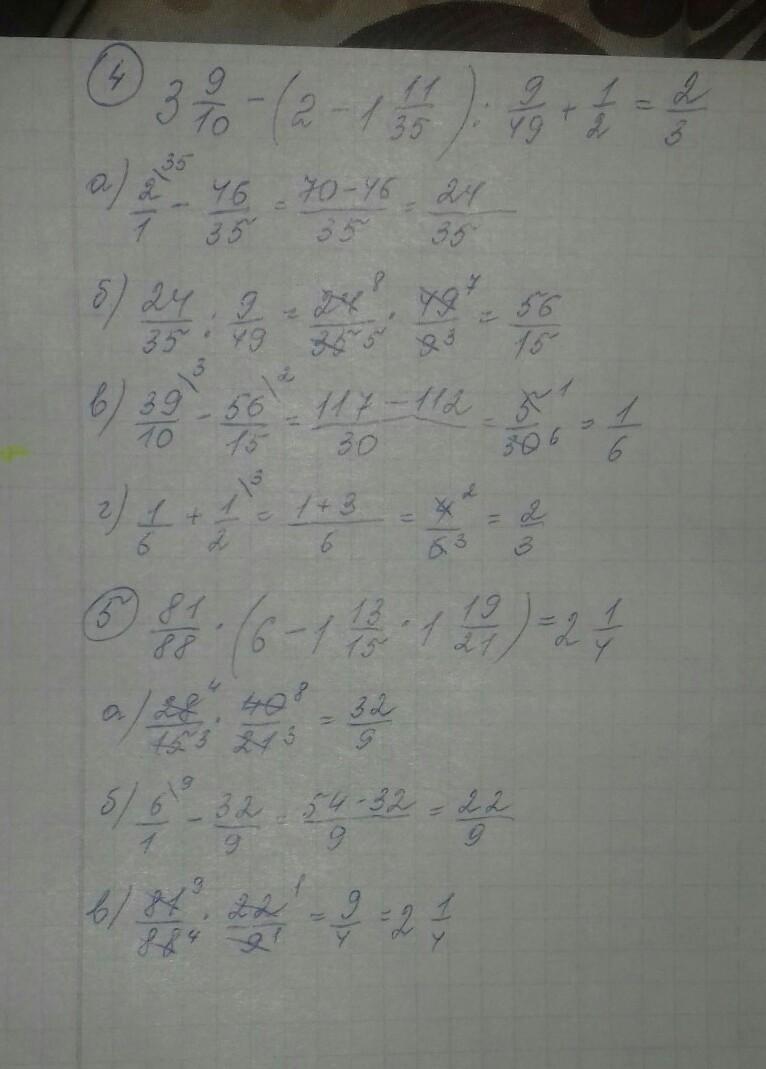 4 3 9/10 - (2 - 1 11/35) : 9/49 + 1/2 = 2/3
а) 2/1 \35 - 46/35 = 70-46/35 = 24/35
б) 24/35 : 9/49 = 24 8/35 5 · 49 7/9 3 = 56/15
в) 39/10 \3 - 56/15 \2 = 117-112/30 = 5 1/30 6 = 1/6
г) 1/6 + 1/2 \3 = 1+3/6 = 4 2/6 3 = 2/3
5 81/88 · (6 - 1 13/15 · 1 19/21) = 2 1/4
а) 28 4/15 3 · 40 8/21 3 = 32/9
б) 6/1 \9 - 32/9 = 54-32/9 = 22/9
в) 81 9/88 4 · 22 1/9 1 = 9/4 = 2 1/4